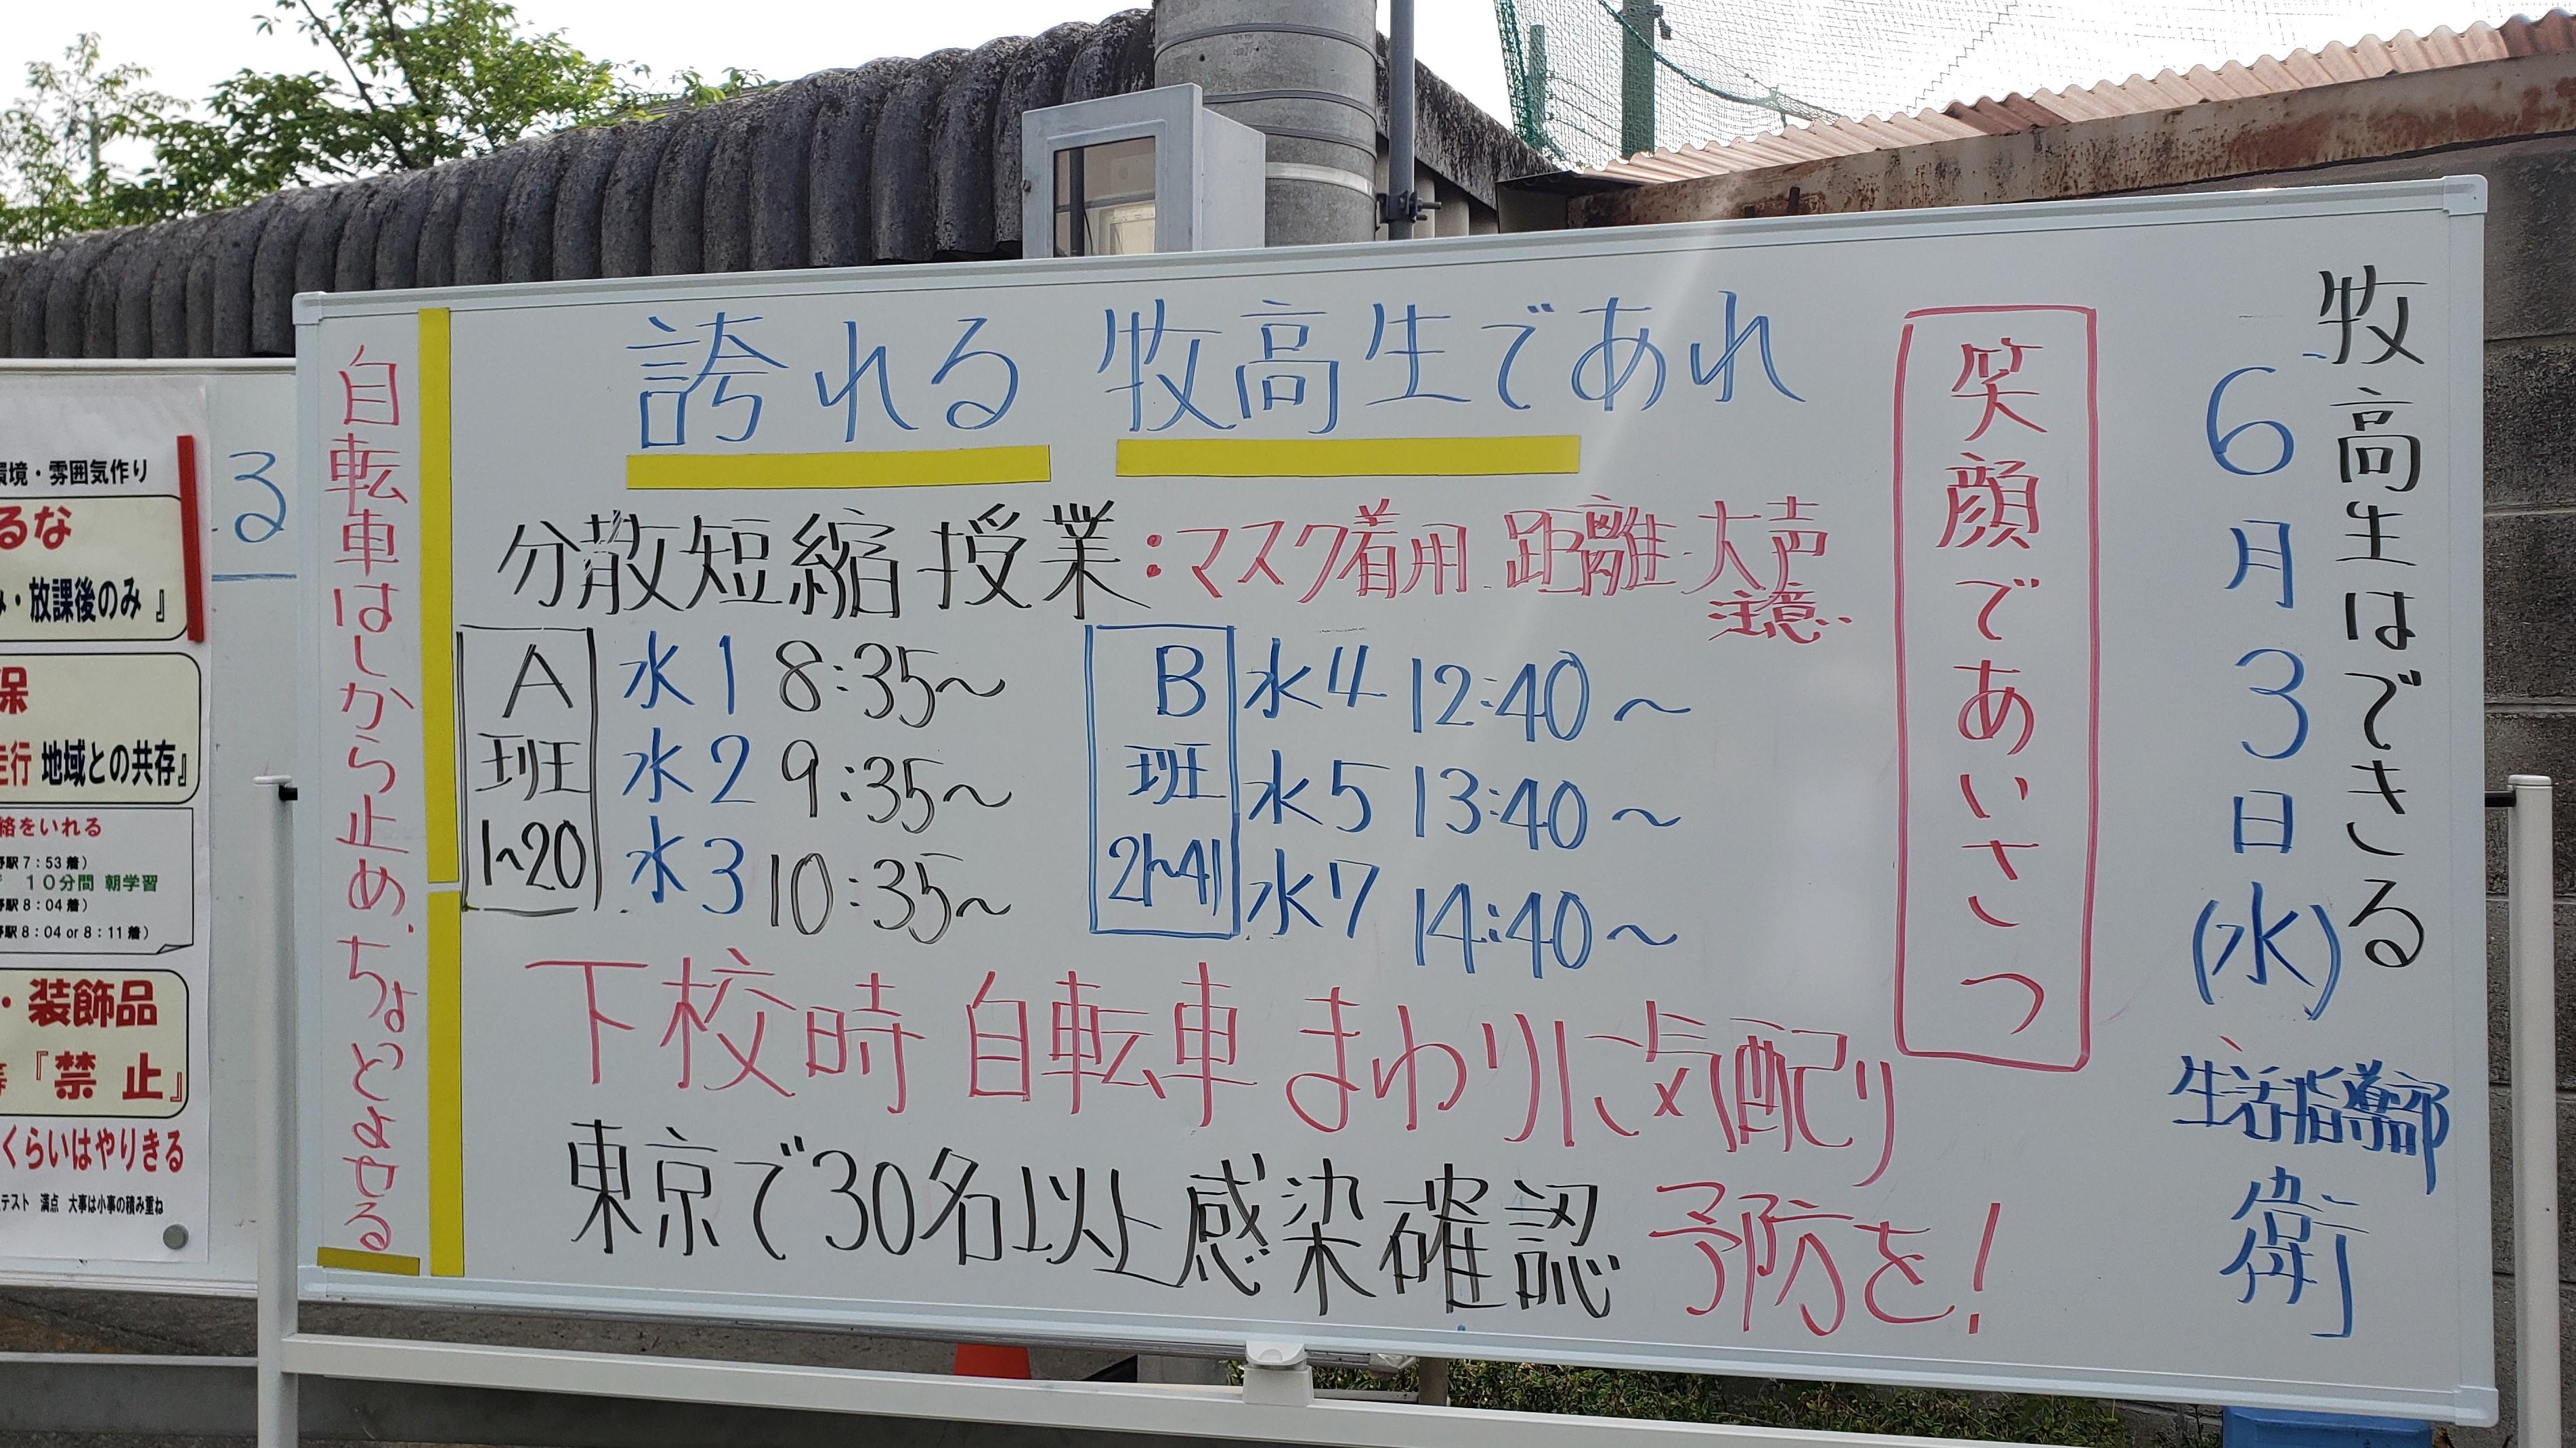 牧高生はできる
6月3日(水)
生活指導部
衛
笑顔であいさつ
誇れる 牧高生であれ
分散短縮授業:マスク着用 距離 大声
注意
A
班
1~20
水1 8:35~
水2 9:35~
水3 10:35~
B
班
21~41
水4 12:40~
水5 13:40~
水7 14:40~
下校時 自転車 まわりに気配り
東京で30名以上感染確認 予防を!
自転車はしから止め、ちょとよせる
る
環境・雰囲気作り
るな
・放課後のみ』
保
走行 地域との共存』
絡をいれる
駅7:53着)
10分間 朝学習
駅8:04着)
駅8:04 or 8:11着)
・装飾品
『禁 止』
くらいはやりきる
テスト 満点 大事は小事の積み重ね